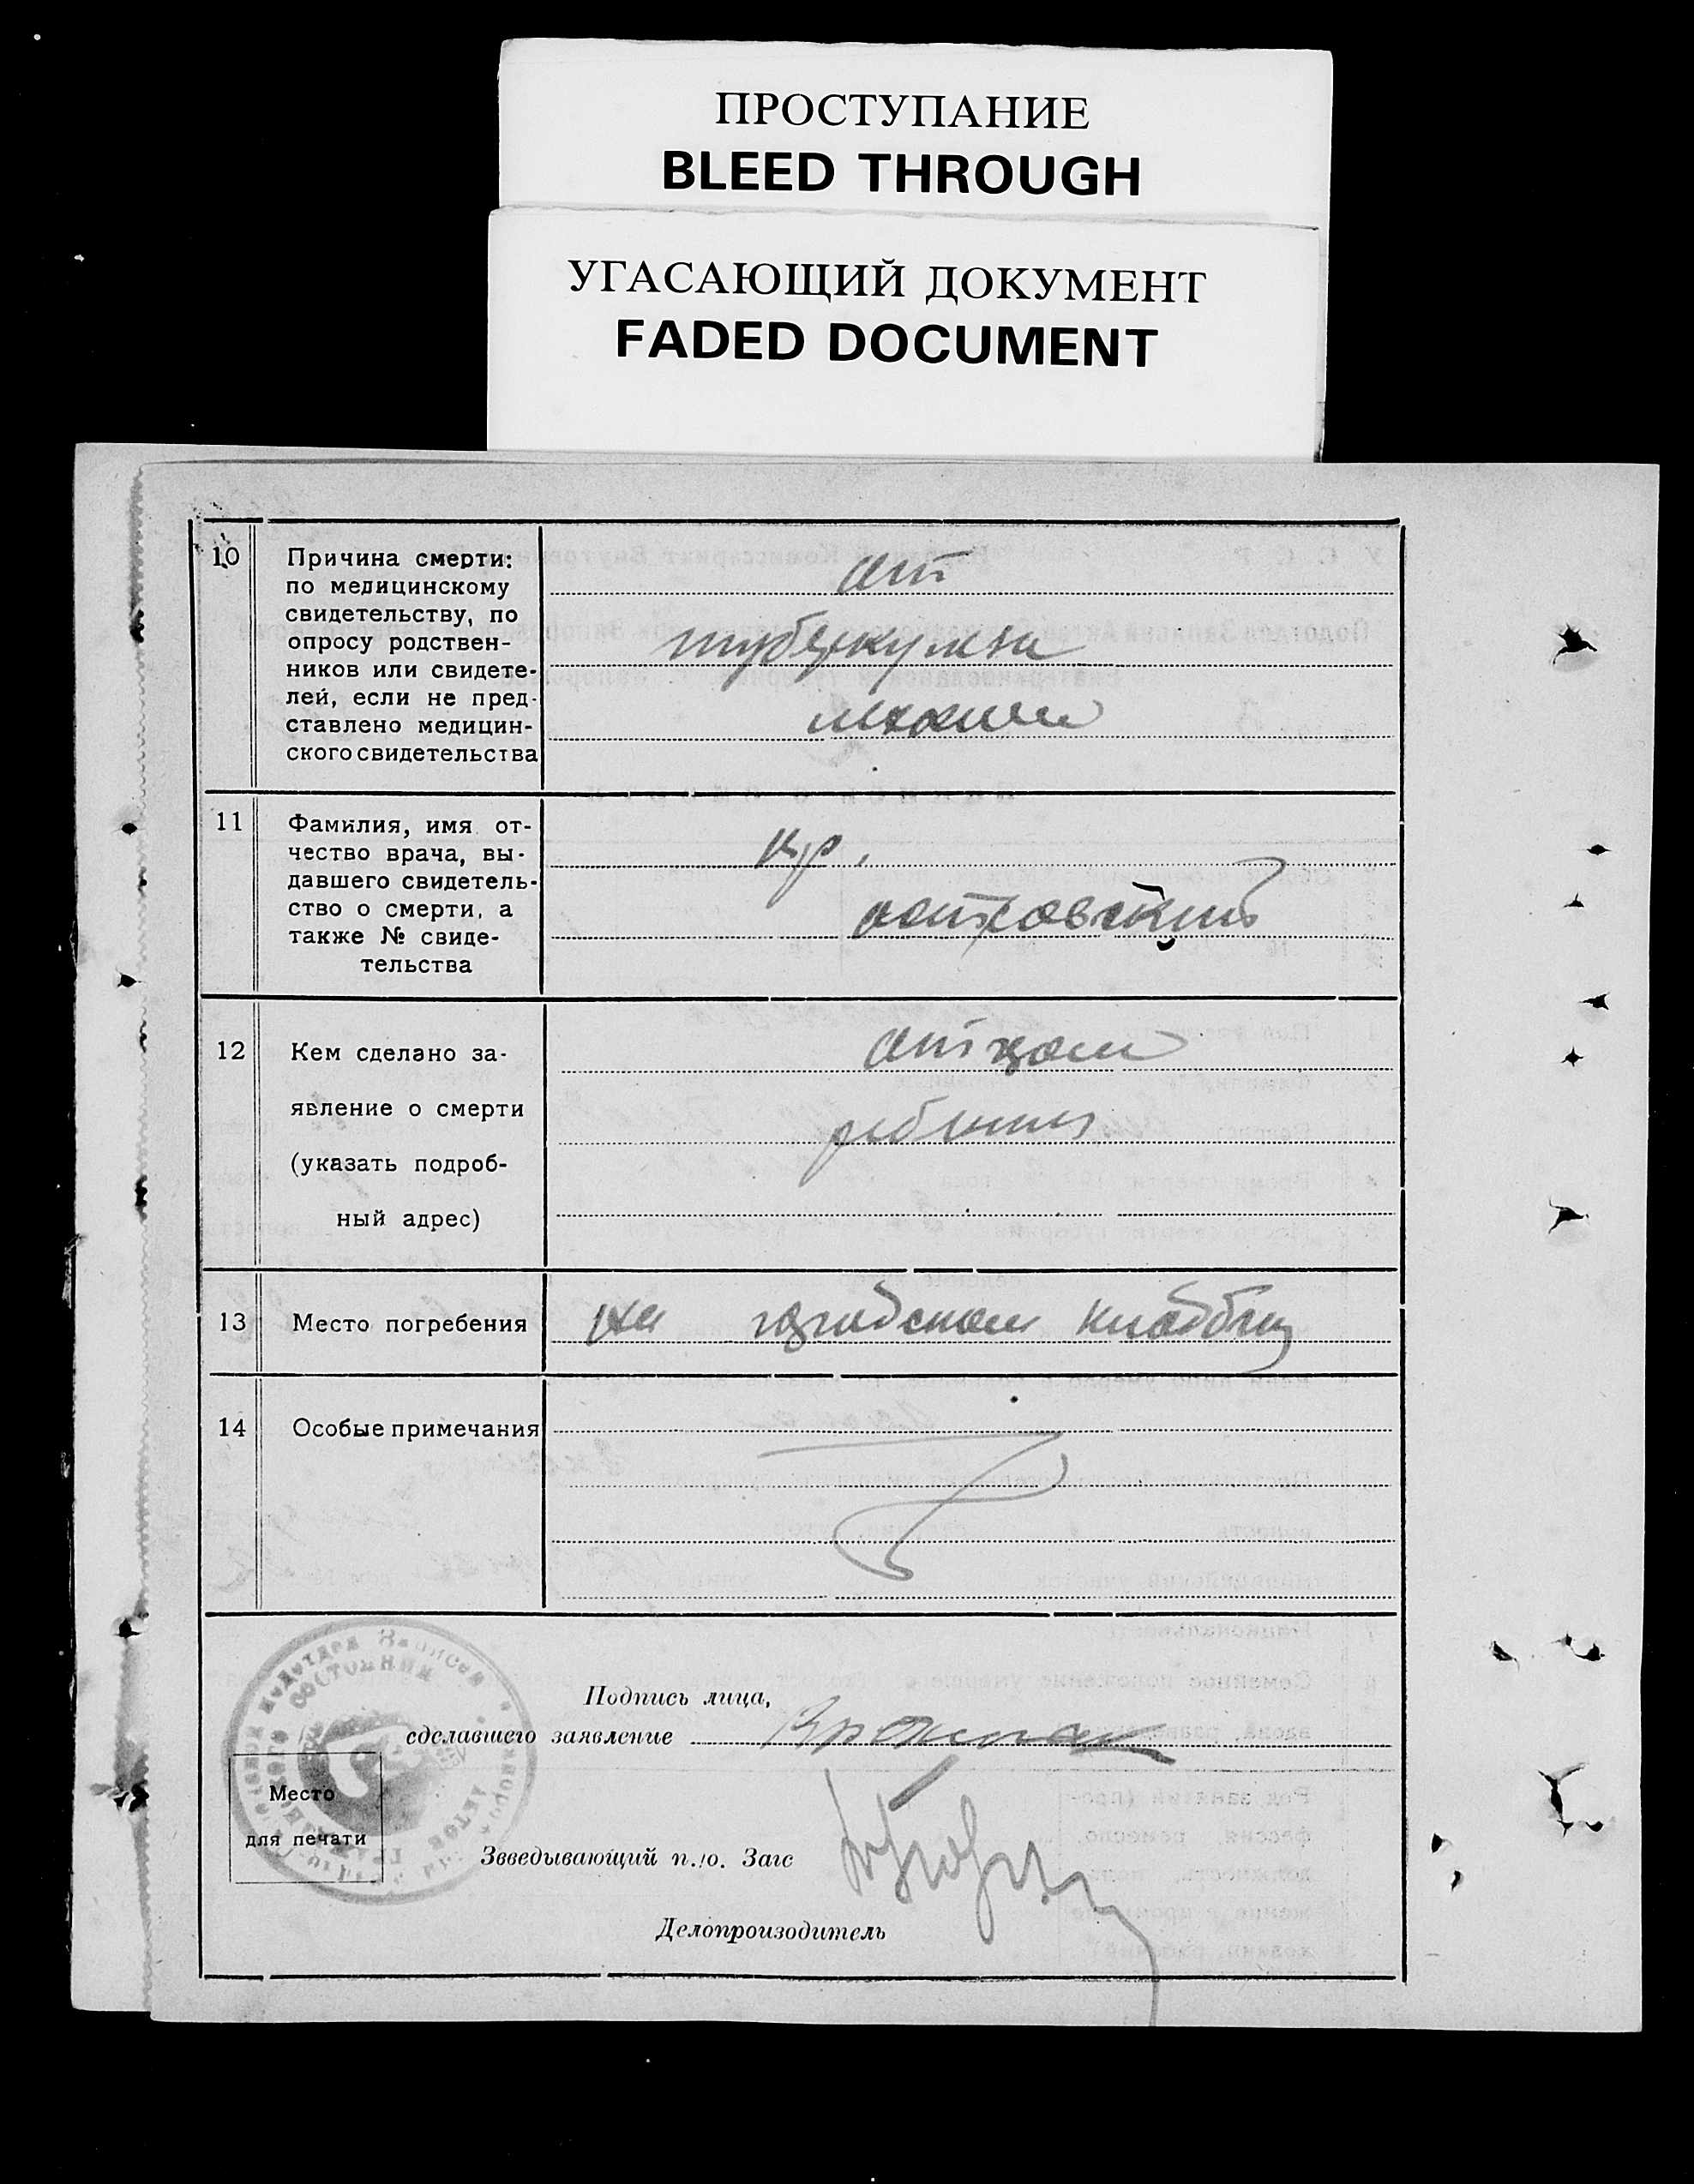 ПРОСТУПАНИЕ
BLEED THROUGH
УГАСАЮЩИЙ ДОКУМЕНТ
FADED DOCUMENT
10 Причина смерти:
по медицинскому
свидетельству, по
опросу родствен-
ников или свидете-
лей, если не пред-
ставлено медицин-
ского свидетельства
от
туберкулеза
11 Фамилия, имя от-
чество врача, вы-
давшего свидетель-
ство о смерти, а
также № свиде-
тельства
островский
12 Кем сделано за-
явление о смерти
(указать подроб-
ный адрес)
отцом
13 Место погребения
на городском кладбищ
14 Особые примечания
Подпись лица,
сделавшего заявление
Место
для печати
Звведывающий п./о. Загс
Делопроизодитель